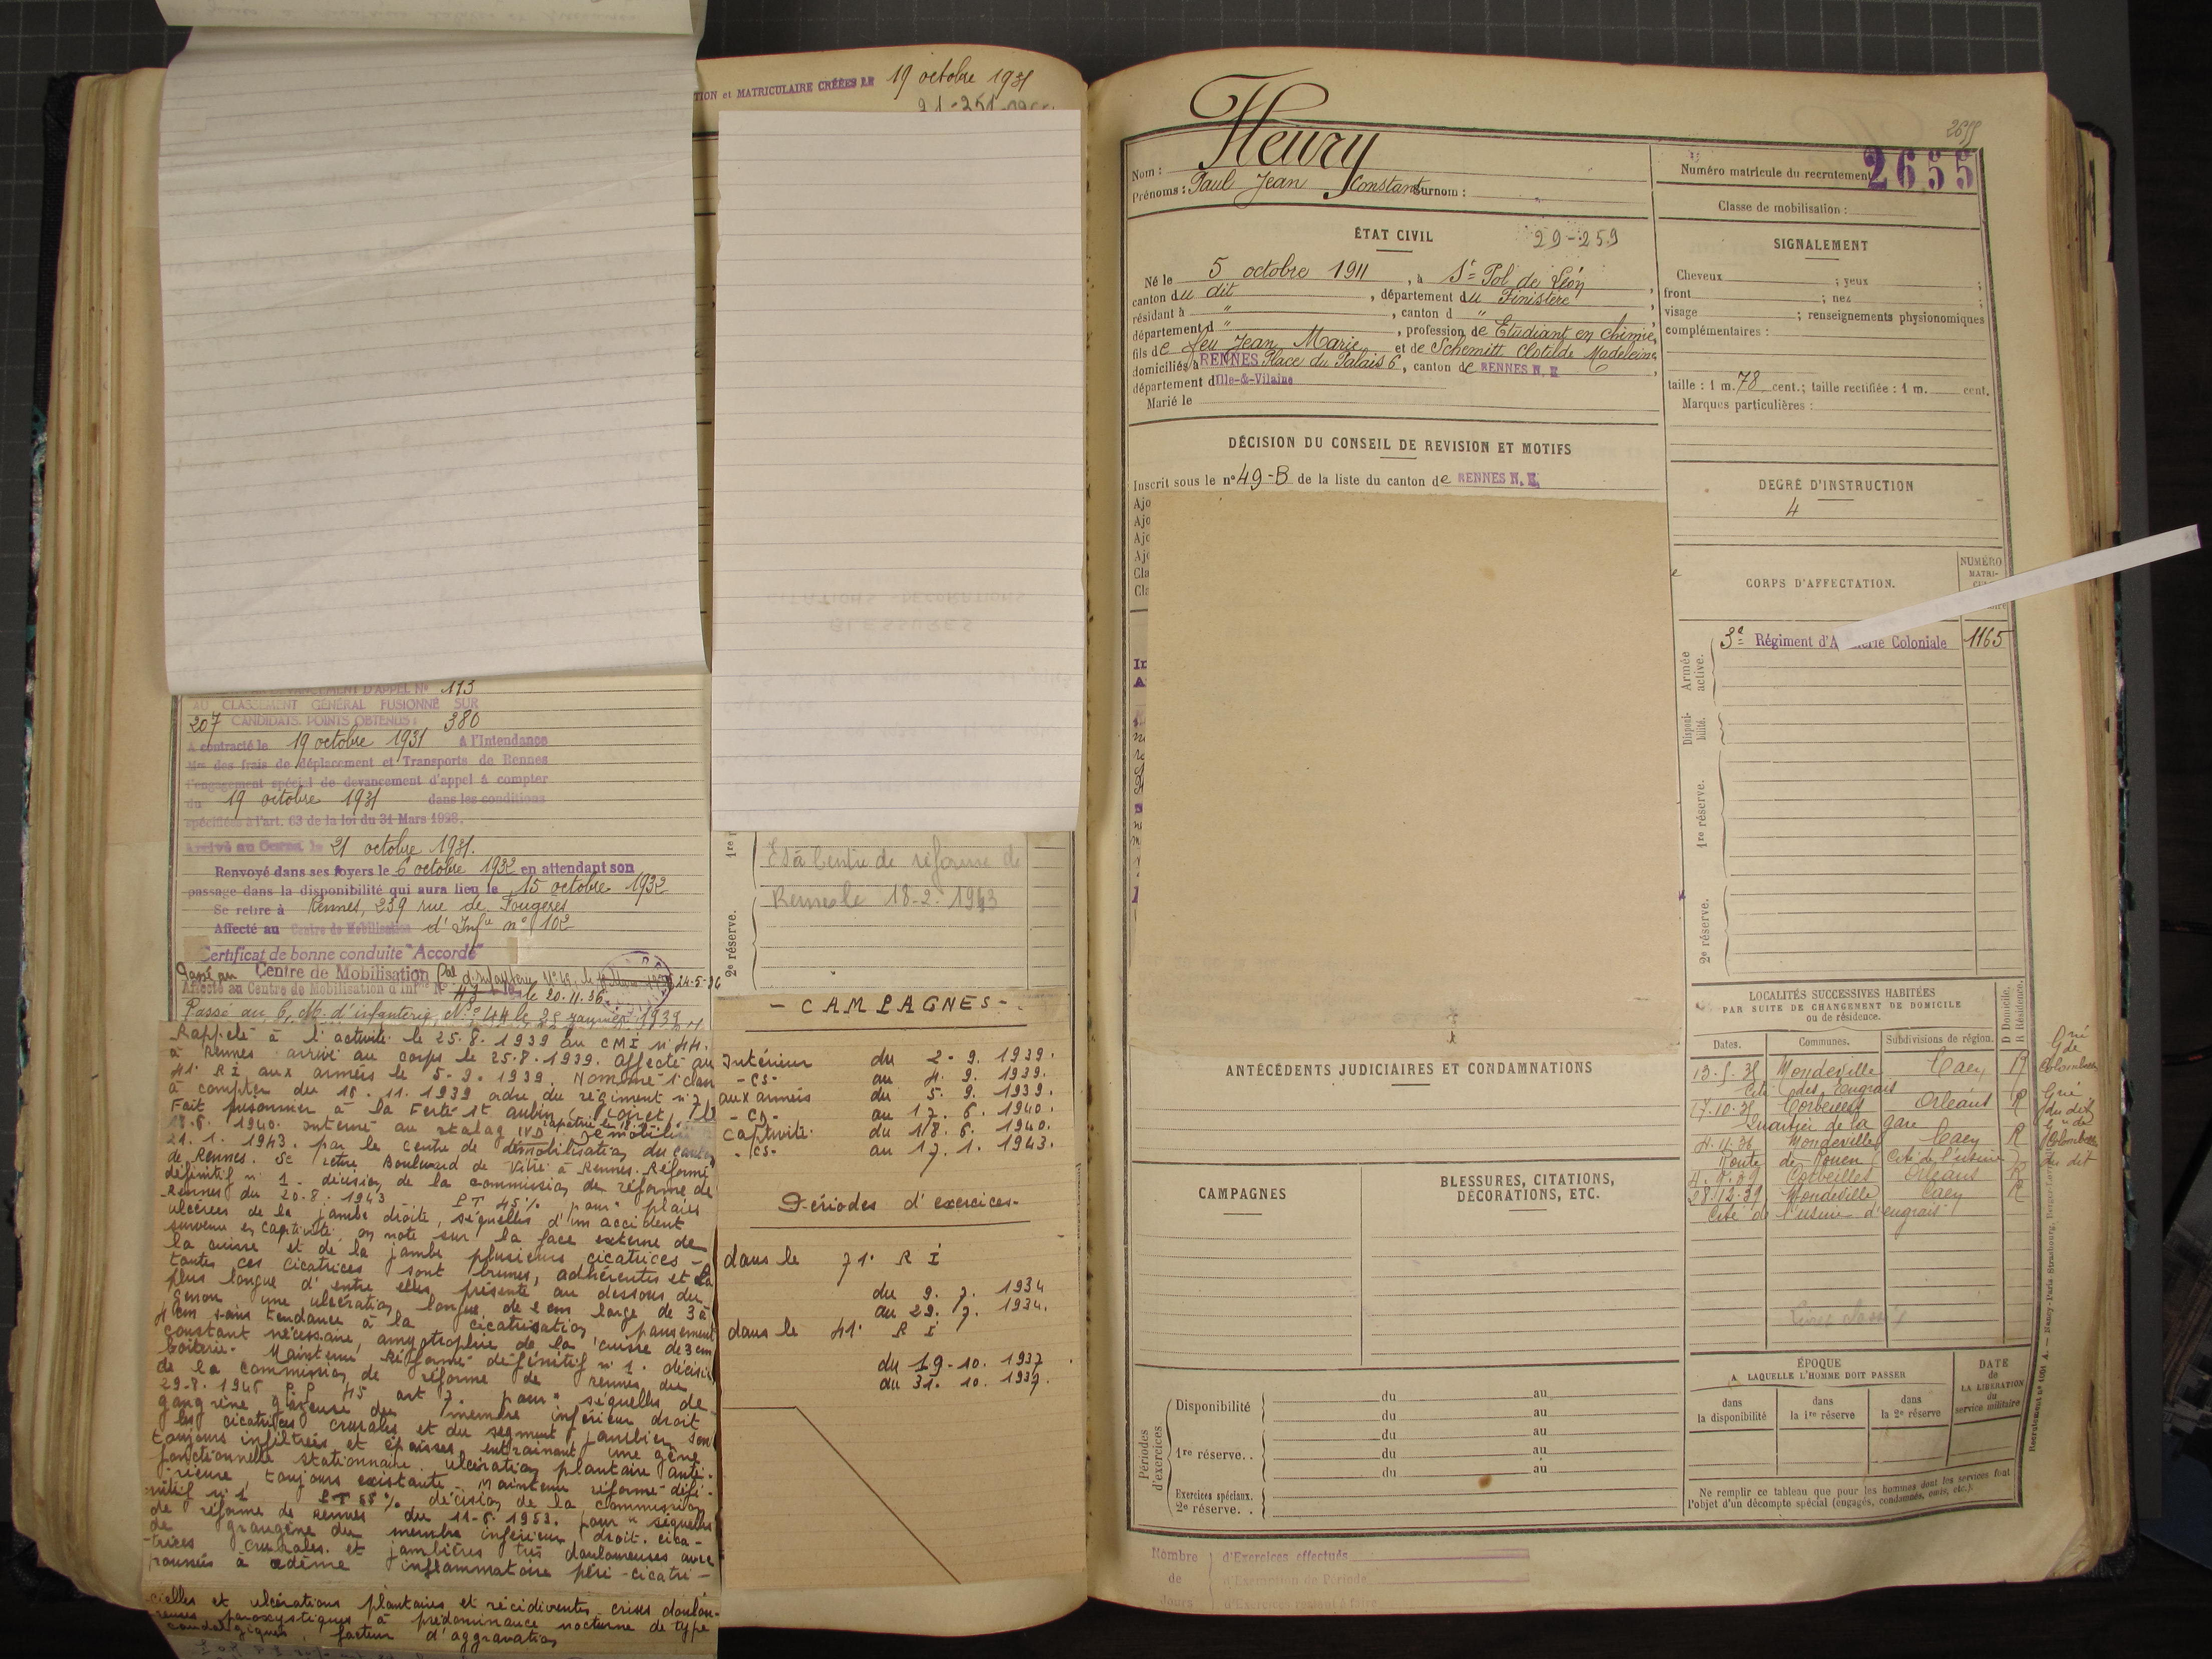 TION et MATRICULAIRE CRÉÉES LE 19 octobre 1931
DEVANCEMENT D'APPEL N° 173
AU CLASSEMENT GÉNÉRAL FUSIONNÉ SUR
207 CANDIDATS. POINTS OBTENUS : 380
A contracté le 19 octobre 1931 à l'Intendance
Mre des frais de déplacement et Transports de Rennes
l'engagement spécial de devancement d'appel à compter
du 19 octobre 1931 dans les conditions
spécifiées à l'art. 63 de la loi du 31 Mars 1928.
Arrivé au Corps le 21 octobre 1931.
Renvoyé dans ses foyers le 6 octobre 1932 en attendant son
passage dans la disponibilité qui aura lieu le 15 octobre 1932
Se retire à Rennes, 239 rue de Fougères
Affecté au Centre de Mobilisation d'Infie n° 102
Certificat de bonne conduite "Accordé"
Passé au Centre de Mobilisation 24-5-36
Affecté au Centre de Mobilisation d'Infie N° 43 le 20.11.36
Passé au C. M. d'infanterie N° 44 le 25 janvier 1939
Rappelé à l'activité le 25.8.1939 au CMI n° 44.
à Rennes arrivé au corps le 25.8.1939. affecté au
41e RI aux armées le 5-9-1939. Nommé 1e clas
à compter du 16.11.1939 ordre du régiment n° 7
Fait prisonnier à la Ferté St aubin (Loiret) le
18.6.1940. interné au stalag IVD rapatrié le démobili
21.1.1943. par le centre de démobilisation du
de Rennes. Se retire Boulevard de Vitré à Rennes. Réformé
définitif n° 1. décision de la commission de réforme de
Rennes du 20.8.1943 PT 45% pour " plaies
ulcérées de la jambe droite, séquelles d'un accident
survenu en captivité. on note sur la face externe de
la cuisse et de la jambe plusieurs cicatrices -
toutes ces cicatrices sont brunes, adhérentes et la
plus longue d'entre elles, présente au dessous du
genou une ulcération longue de 8 cm large de 3 à
4 cm sans tendance à la cicatrisation, pansement
constant nécessaire, amyotrophie de la cuisse de 3 cm
boiterie. Maintenu Réformé définitif n° 1. décisi
de la commission de réforme de rennes du
29.8.1945 P.P 45 art 7. pour " séquelles de
gangrène gazeuse du membre inférieur droit
les cicatrices crurales et du segment jambier son
toujours infiltrées et épaisses entraînant une gêne
fonctionnelle stationnaire. ulcération plantaire anté-
rieure, toujours existante. Maintenu réformé défi-
nitif n° 1 PT 55%, décision de la commission
de réforme de Rennes du 11-6-1953. pour " séquelles
de grangène du membre inférieur droit. cica-
trices crurales et jambières très douloureuses avec
poussées à œdème inflammatoire péri-cicatri-
cielles et ulcérations plantaires et récidiventes crises doulou-
reuses paroxystiques à prédominance nocturne de type
causalgiques, facteur d'aggravation
1re r
2e réserve.
Centre de réforme de
Rennes le 18-2-1943
- CAMPAGNES -
Intérieur du 2-9.1939.
- CS - au 4.9.1939.
aux armées du 5.9.1939.
- CD - au 17.6.1940.
captivité du 18.6.1940.
- CS - au 17.1.1943.
Périodes d'exercices-
dans le 71e RI
du 9.7.1934
au 29.7.1934.
dans le 41e RI
du 19-10.1937
au 31.10.1937.
2655
Nom : Fleury
Prénoms : Paul Jean Constant Surnom :
Numéro matricule du recrutement 2655
Classe de mobilisation :
ÉTAT CIVIL
29-259
Né le 5 octobre 1911, à St Pol de Léon,
canton du dit, département du Finistère
résidant à ", canton d "
département d ", profession de Etudiant en chimie,
fils de feu Jean Marie et de Schemitt Clotilde Madeleine,
domiciliés à RENNES Place du Palais 6, canton de RENNES N. E
département d'Ille-&-Vilaine
Marié le
SIGNALEMENT
Cheveux ; yeux ;
front ; nez ;
visage ; renseignements physionomiques
complémentaires :
taille : 1 m. 78 cent.; taille rectifiée : 1 m. cent.
Marques particulières :
DÉCISION DU CONSEIL DE REVISION ET MOTIFS
Inscrit sous le n° 49-B de la liste du canton de RENNES N. E.
DEGRÉ D'INSTRUCTION
4
CORPS D'AFFECTATION.
NUMÉRO
MATRI-
Armée active.
3e Régiment d'A erie Coloniale 1165
Disponibilité.
1re réserve.
2e réserve.
LOCALITÉS SUCCESSIVES HABITÉES
PAR SUITE DE CHANGEMENT DE DOMICILE
ou de résidence.
D Domicile.
R Résidence.
Dates. Communes. Subdivisions de région.
13.5.35 Mondeville Caen R
Cité des Engrais
17.10.35 Corbeilles Orléans R
Quartier de la gare
4.11.36 Mondeville Caen R
Route de Rouen Cité de l'usine
4.9.39 Corbeilles Orléans R
28.12.39 Mondeville Caen R
Cité de l'usine d'engrais
ANTÉCÉDENTS JUDICIAIRES ET CONDAMNATIONS
CAMPAGNES
BLESSURES, CITATIONS,
DÉCORATIONS, ETC.
Périodes d'exercices
Disponibilité du au
du au
1re réserve.. du au
du au
du au
Exercices spéciaux.
2e réserve. .
ÉPOQUE
A LAQUELLE L'HOMME DOIT PASSER
dans la disponibilité
dans la 1re réserve
dans la 2e réserve
DATE
de
LA LIBÉRATION
du
service militaire
Ne remplir ce tableau que pour les hommes dont les services font
l'objet d'un décompte spécial (engagés, condamnés, omis, etc.).
Nombre de Jours
d'Exercices effectués
d'Exemption de Période
d'Exercices restant à faire